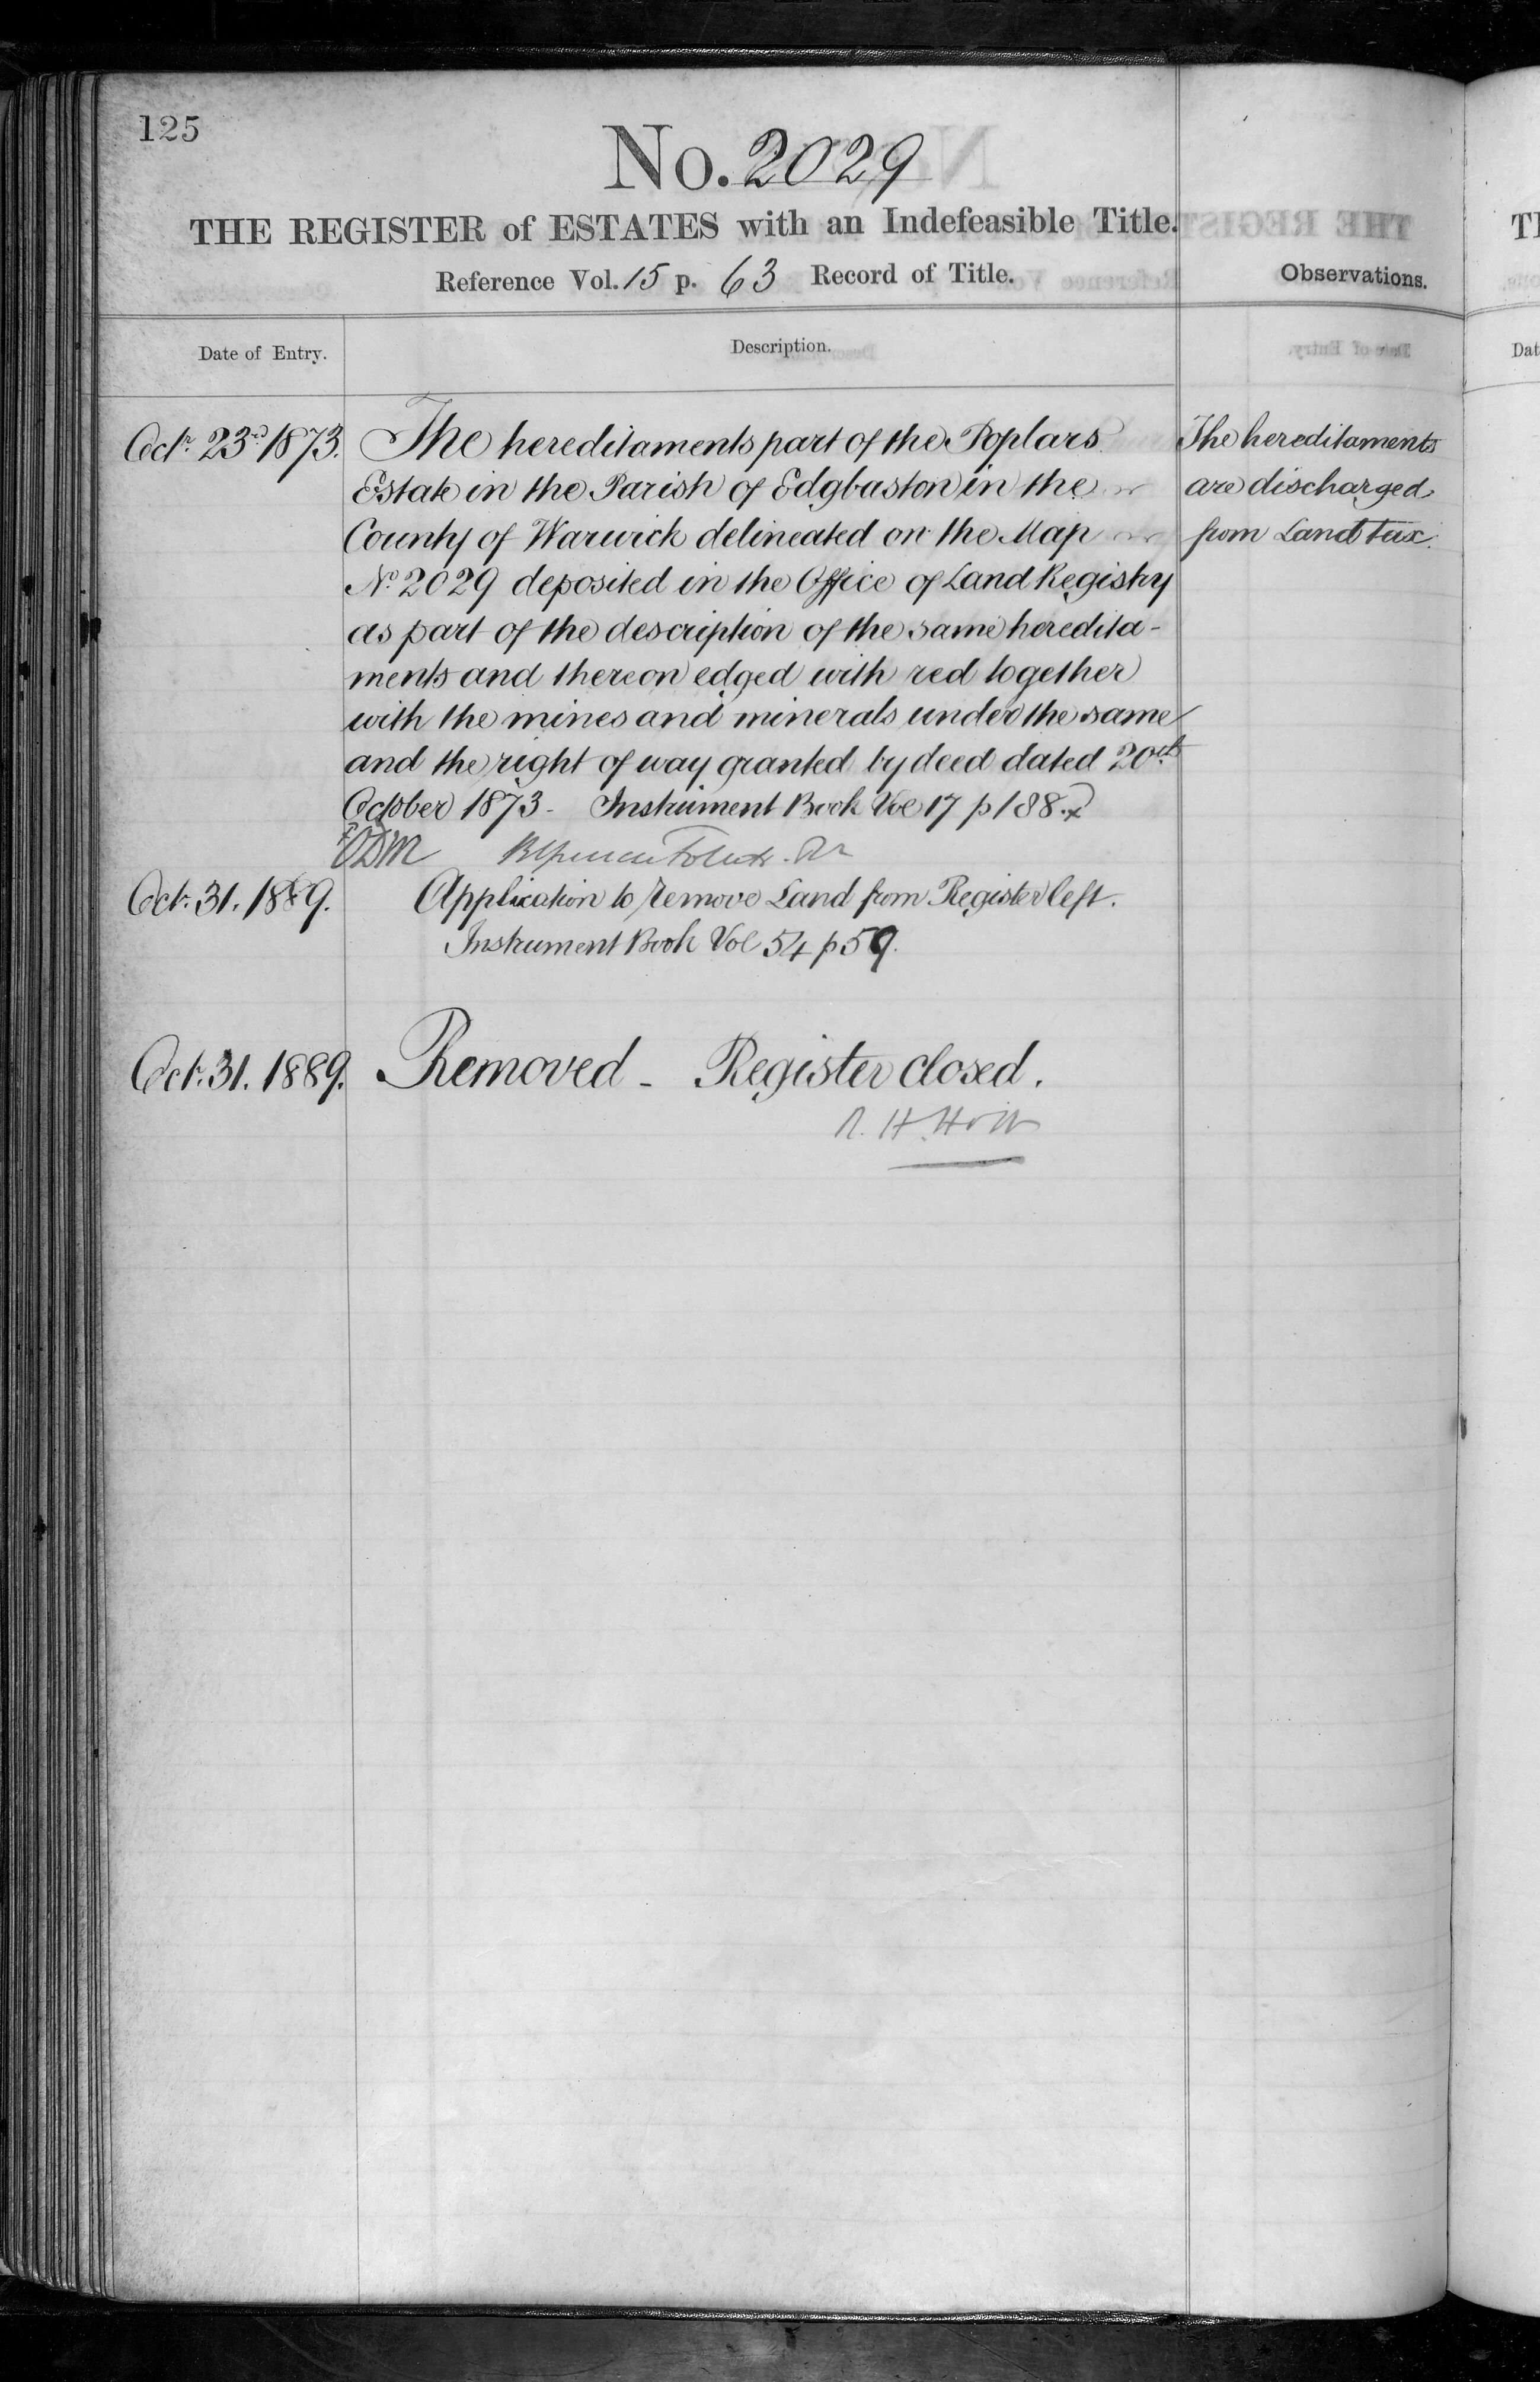 125
No. 2029
THE REGISTER of ESTATES with an Indefeasible Title.
Reference Vol. 15 p. 63 Record of Title.
Observations.
Date of Entry.
Description.
Octr. 23rd 1873.
The hereditaments part of the Poplars
Estate in the Parish of Edgbaston in the
County of Warwick delineated on the Map
No 2029 deposited in the Office of Land Registry
as part of the description of the same heredita-
ments and thereon edged with red together
with the mines and minerals under the same
and the right of way granted by deed dated 20th
October 1873 - Instrument Book Vol 17 p 188.
The hereditaments
are discharged
from Land tax.
Oct. 31. 1889.
Application to remove Land from Register left.
Instrument Book Vol 54 p 59.
Oct. 31. 1889.
Removed - Register closed.
R. H. Holt